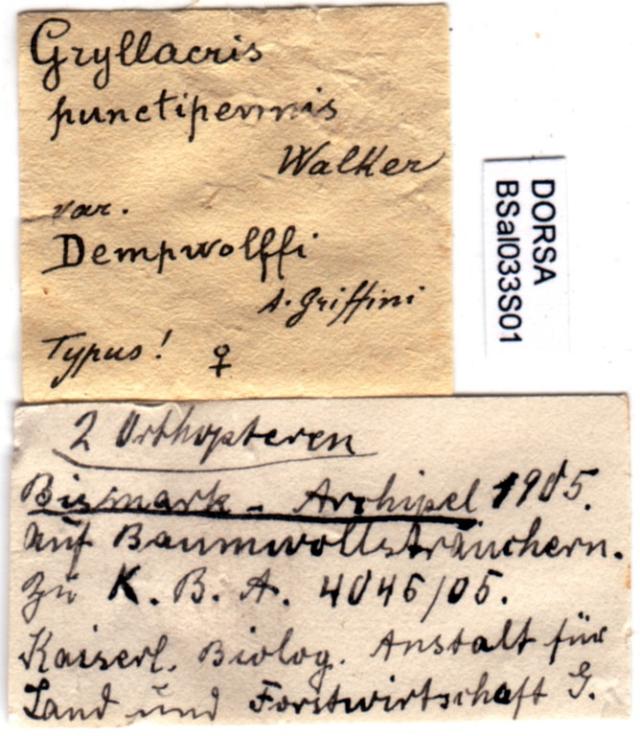 Gryllacris
punctipennis
Walker
var.
Dempwolffi
A. Griffini
Typus! ♀
DORSA
BSal033S01
2 Orthopteren
Bismark - Archipel 1905.
auf Baumwollsträuchern.
Zu K. B. A. 4046/05.
Kaiserl. Biolog. Anstalt für
Land und Forstwirtschaft G.